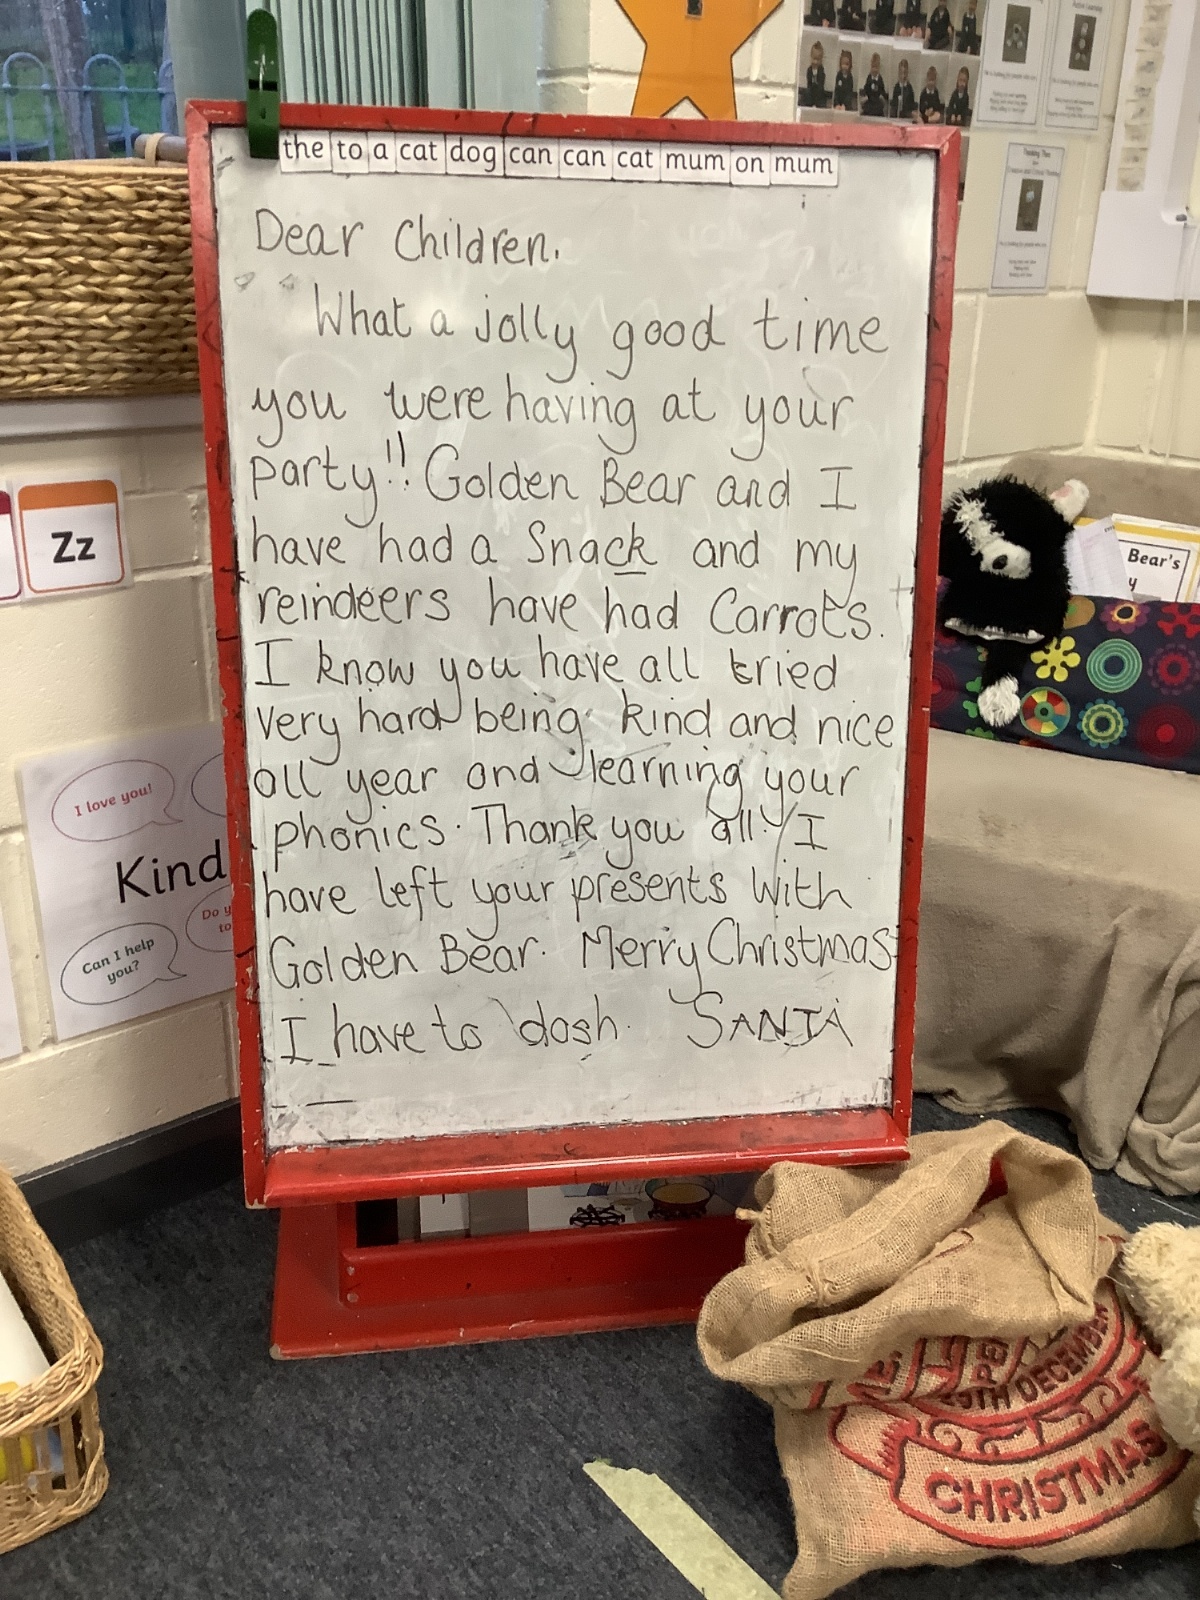 the to a cat dog can can cat mum on mum
Dear Children.
What a jolly good time
you were having at your
party!! Golden Bear and I
have had a Snack and my
reindeers have had Carrots.
I know you have all tried
very hard being kind and nice
all year and learning your
phonics. Thank you all. I
have left your presents With
Golden Bear. Merry Christmas
I have to dash. SANTA
Zz
I love you!
Kind
Do y
to
Can I help
you?
Bear's
y
DECEMBER
CHRISTMAS